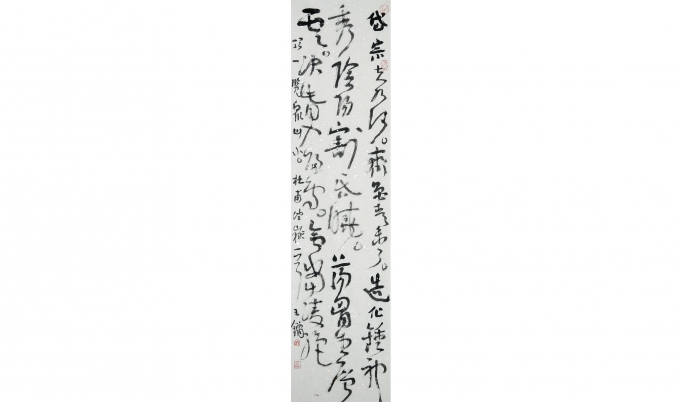 岱宗夫如何。齊魯青未了。造化鍾神
秀。陰陽割昏曉。蕩胸生層
雲。決眥入歸鳥。會當凌絕
頂一覽眾山小。杜甫望嶽一首 王鏞